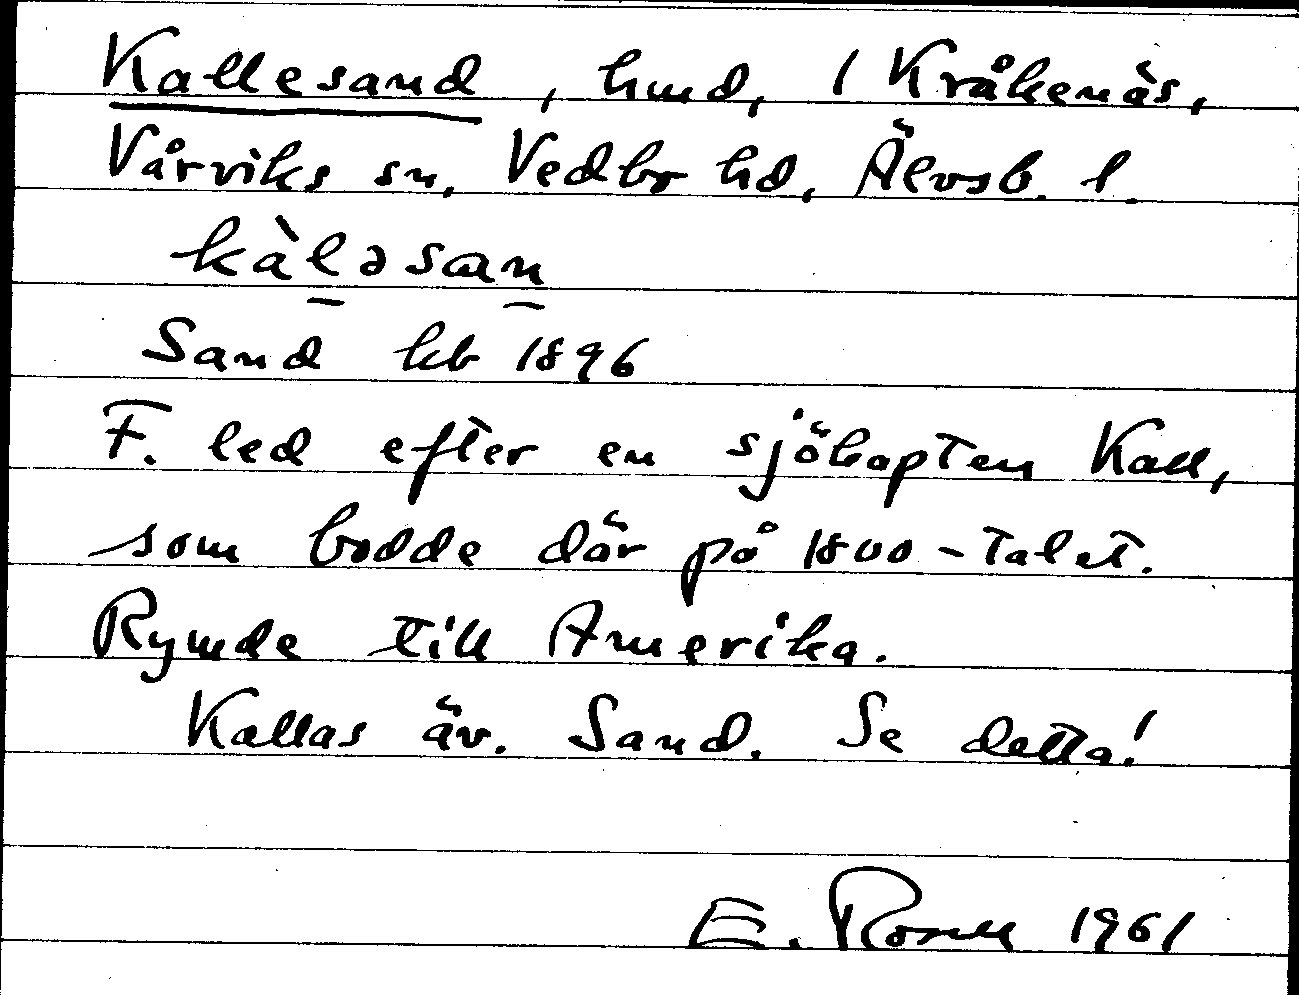 Kallesand, hmd, 1 Kråkenäs,
Vårviks sn, Vedbo hd, Älvsb. l.
kàl̠əsan̠
Sand kb 1896
F. led efter en sjökapten Kall,
som bodde där på 1800-talet.
Rymde till Amerika.
Kallas äv. Sand. Se detta!
E. Rosell 1961